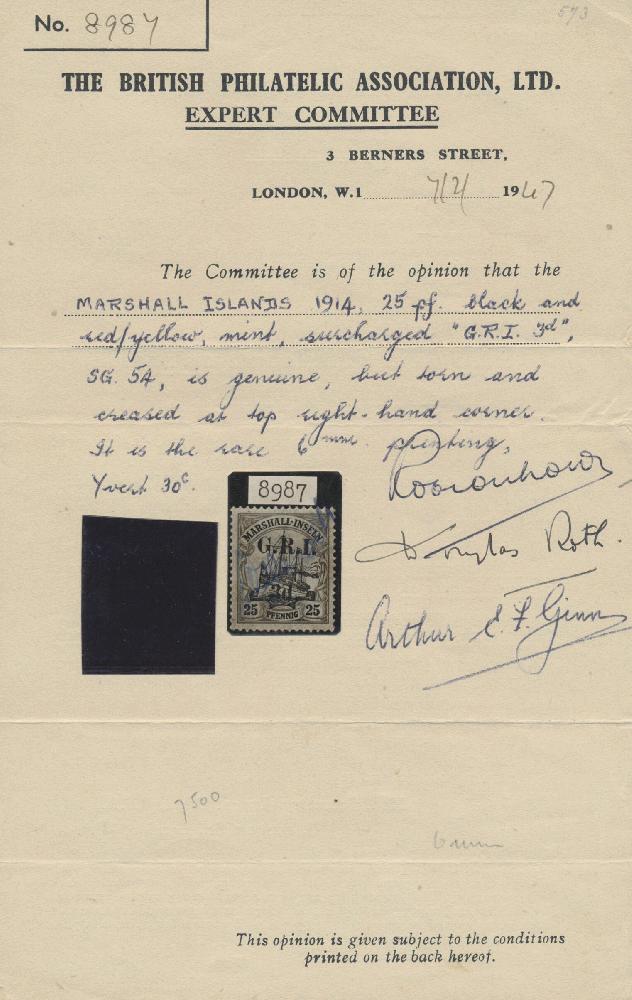 No. 8987
573
THE BRITISH PHILATELIC ASSOCIATION, LTD.
EXPERT COMMITTEE
3 BERNERS STREET,
LONDON, W.1 7/2/ 1947
The Committee is of the opinion that the
MARSHALL ISLANDS 1914, 25 pf. black and
red/yellow, mint, surcharged "G.R.I. 3d",
SG. 54, is genuine, but torn and
creased at top right-hand corner.
It is the rare 6 mm. printing,
Yvert 30c.
8987
MARSHALL-INSELN
G.R.I.
3d
25 PFENNIG 25
Douglas Roth.
Arthur E. F. Ginn
7500
6 mm
This opinion is given subject to the conditions
printed on the back hereof.